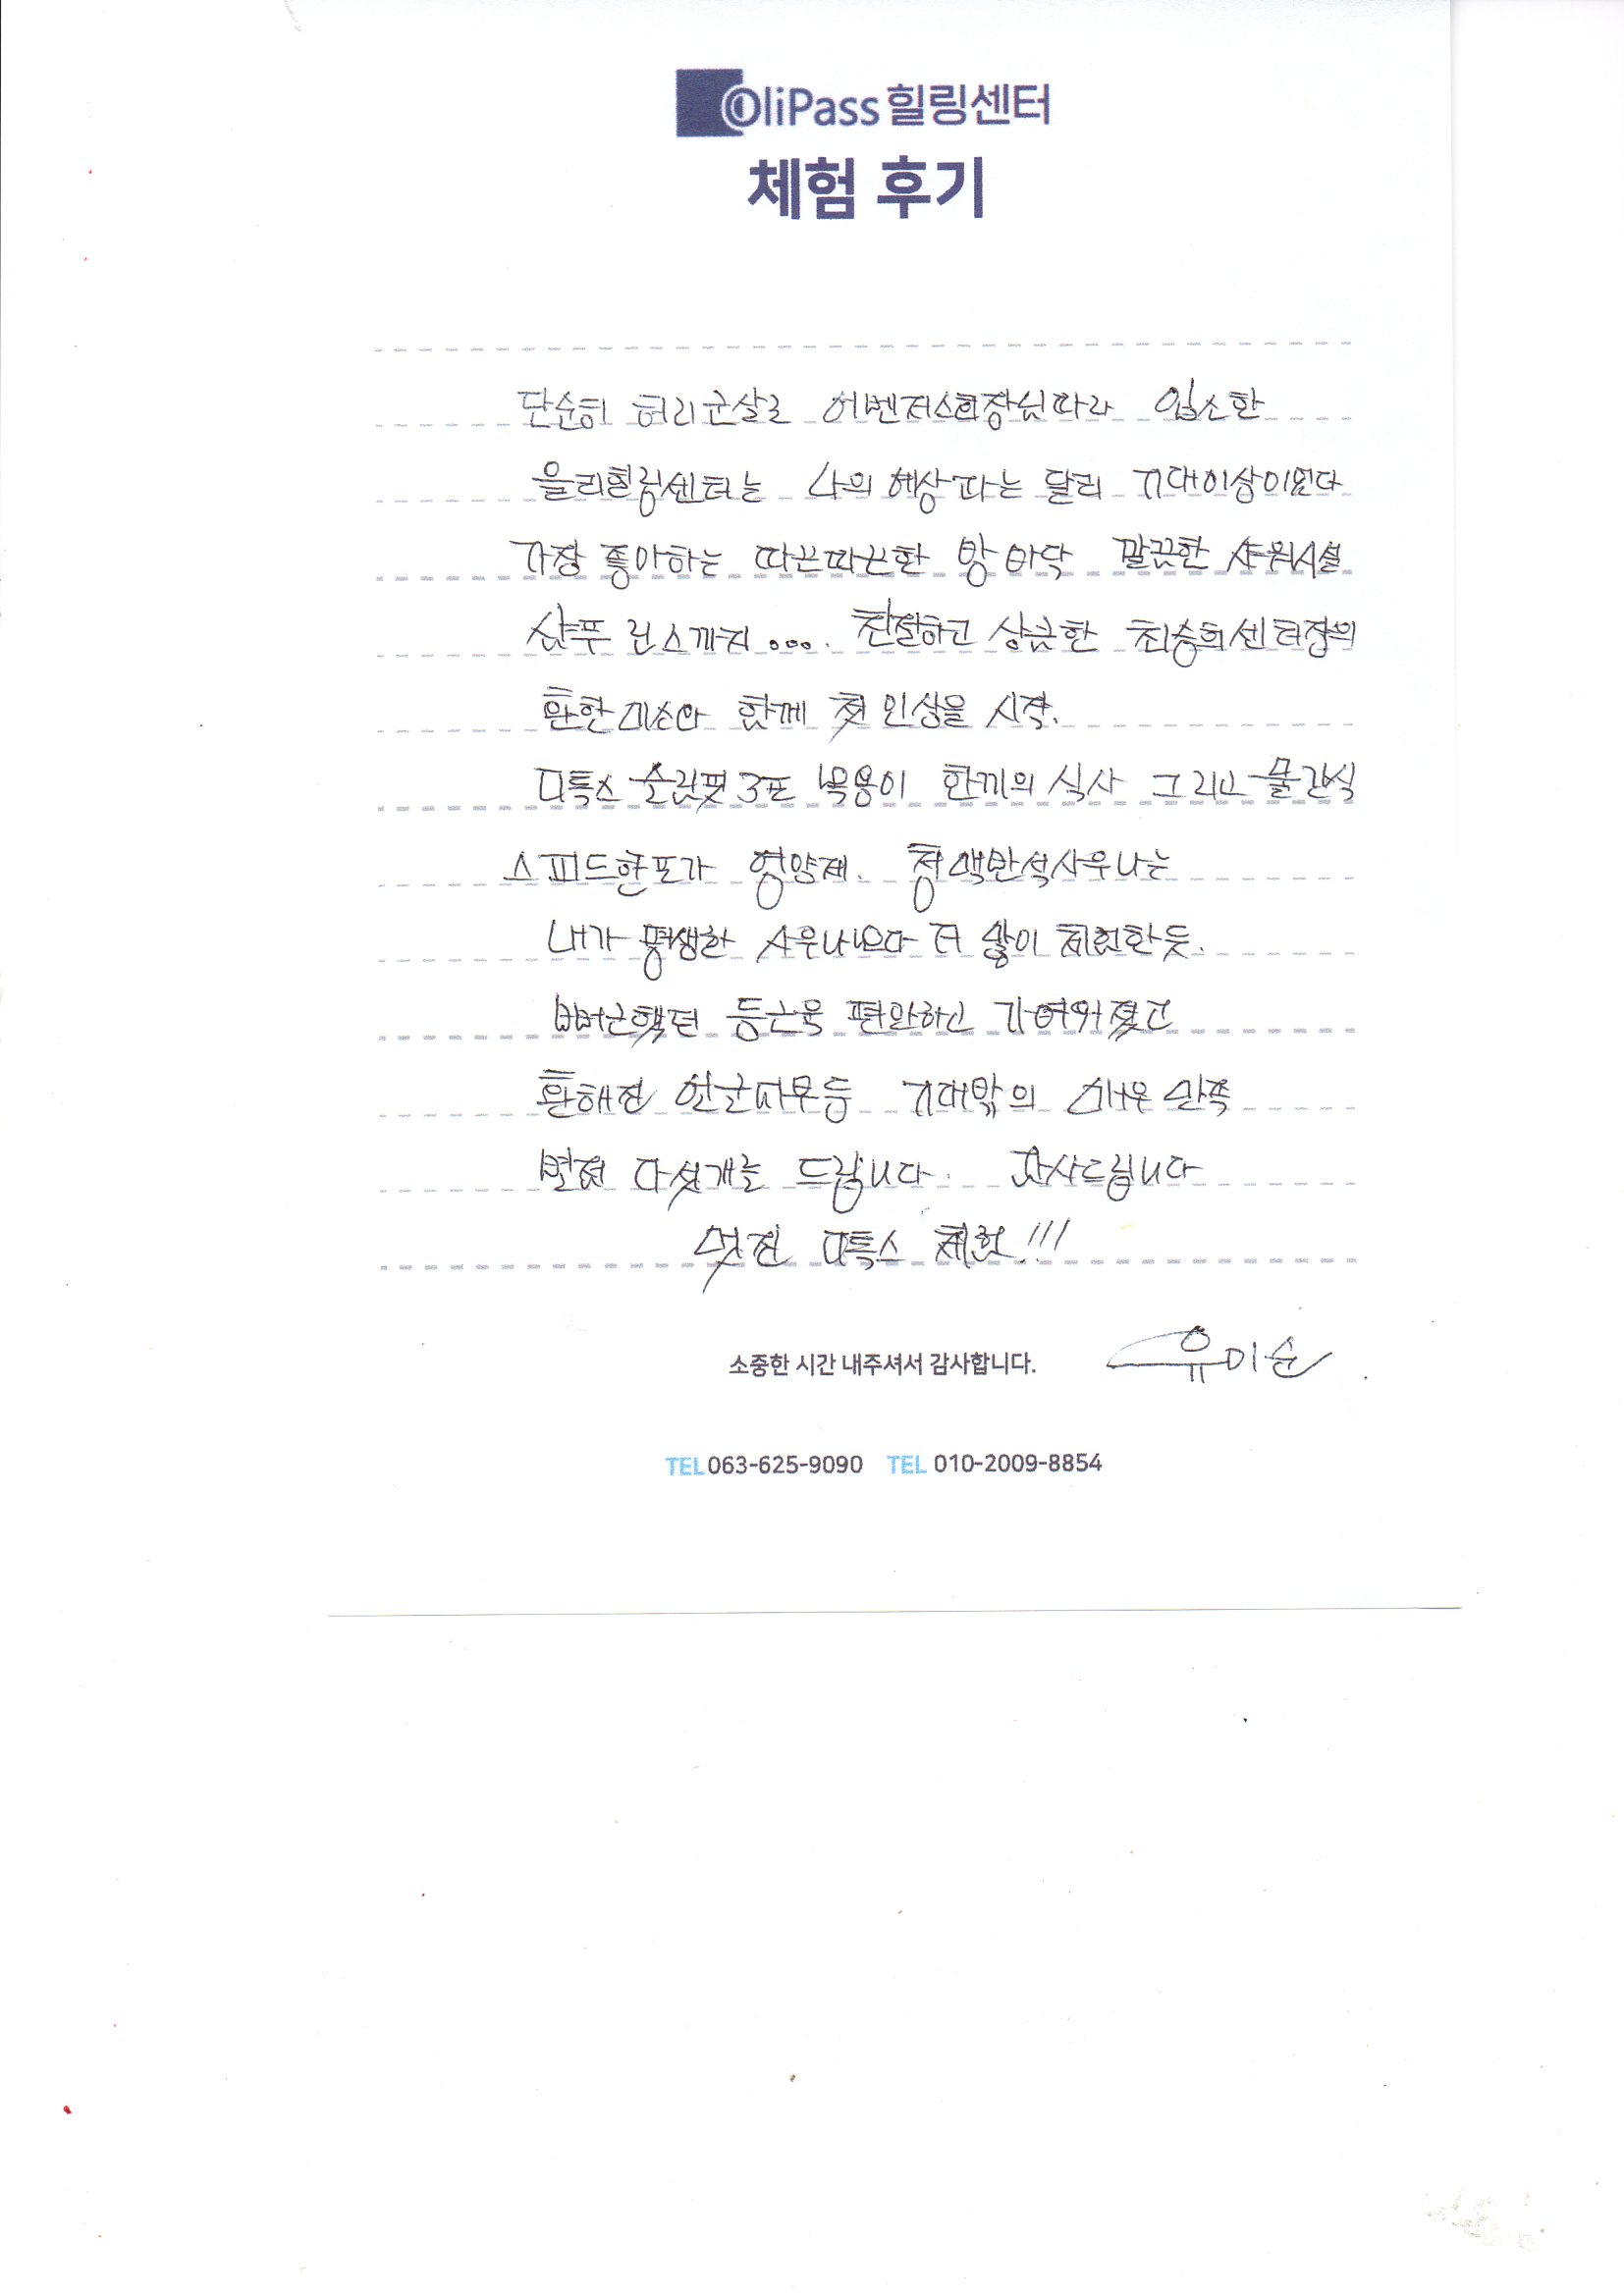 OliPass 힐링센터
체험 후기
단순히 허리군살로 어벤저스회장님따라 입소한
올리힐링센터는 나의 예상과는 달리 기대이상이였다
가장 좋아하는 따끈따끈한 방바닥 깔끔한 샤워시설
샴푸 린스까지 .... 친절하고 상큼한 최승희센터장의
환한미소와 함께 첫 인상을 시작.
디톡스 슬림핏 3포 복용이 한끼의 식사 그리고 물간식
스피드한포가 영양제. 청맥반석사우나는
내가 평생한 사우나보다 더 많이 체험한듯.
뻐근했던 등근육 편안하고 가벼워졌고
환해진 얼굴피부등 기대밖의 매우 만족
별점 다섯개를 드립니다. 감사드립니다
멋진 디톡스 체험!!!
소중한 시간 내주셔서 감사합니다.
유미순
TEL 063-625-9090 TEL 010-2009-8854